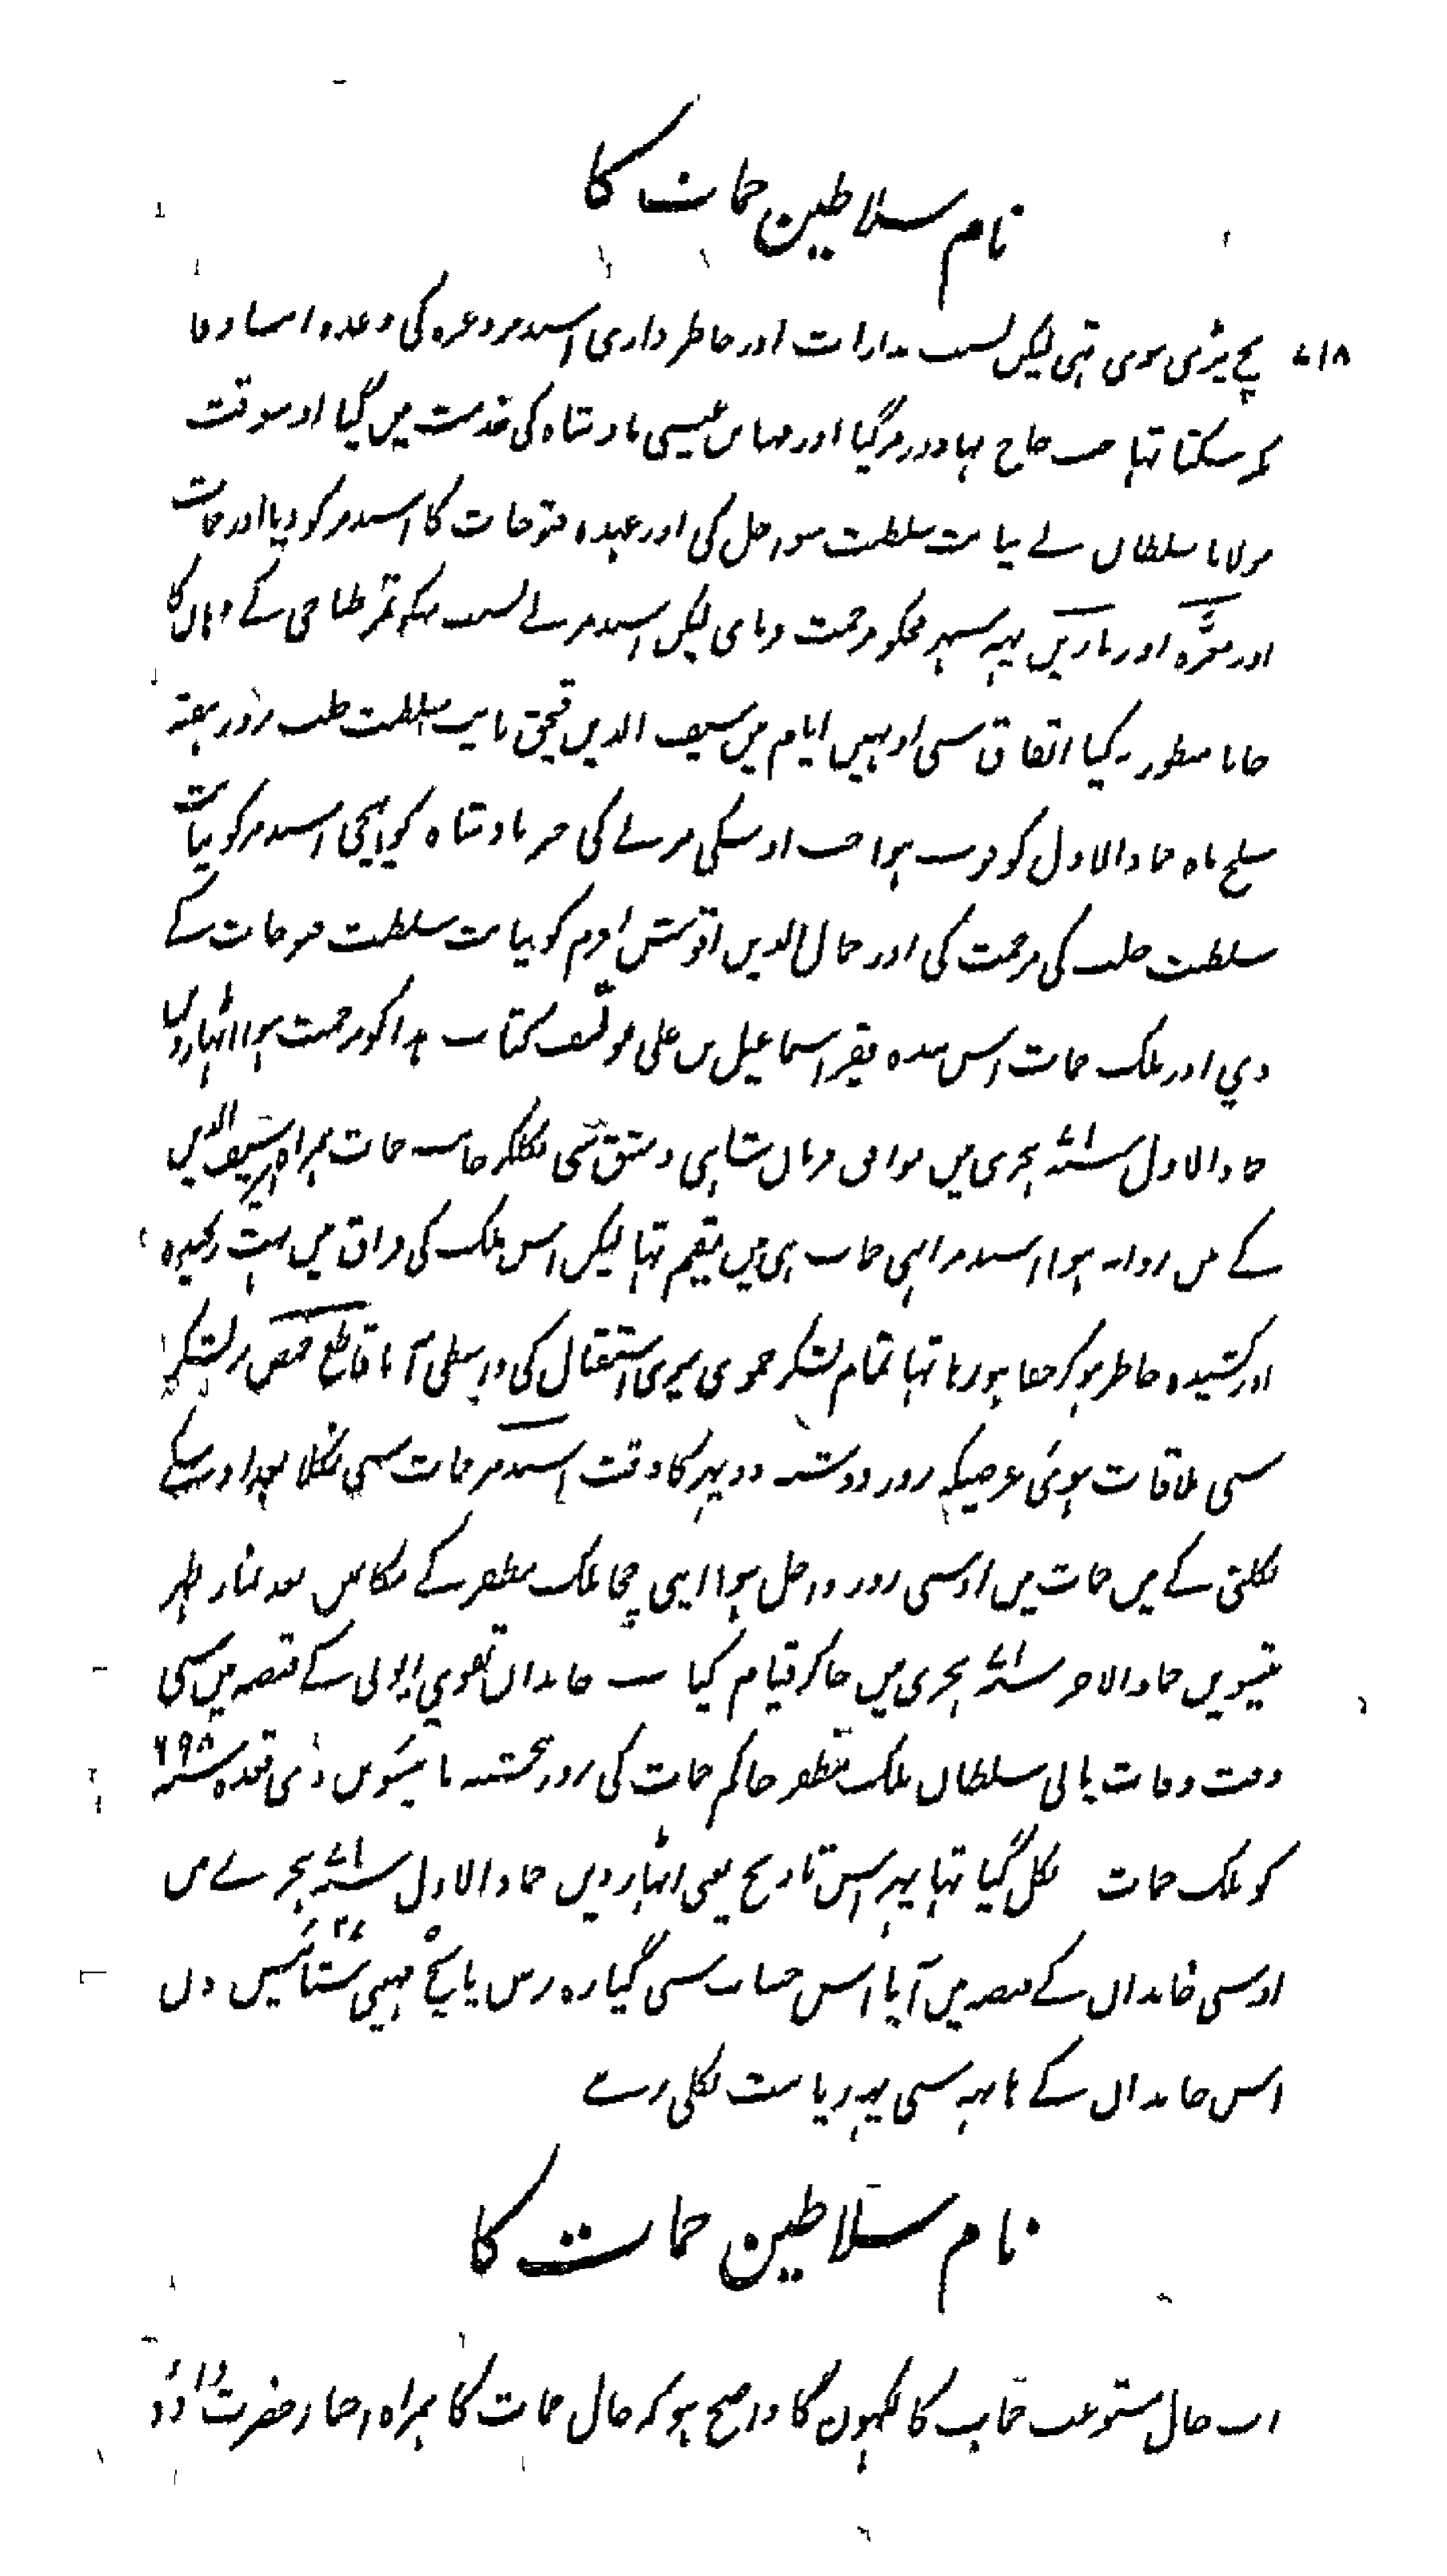 نام سلاطین حمات کا
۷۱۸ پیچ پڑی ہوی تہی لیکن بسبب مدارات اور خاطر داری اسندمر وغیرہ کی وعدہ ایسا وفا
کر سکتا تہا جب حاج بہادر مر گیا اور مہاں عیسی بادشاہ کی خدمت میں گیا اوسوقت
مولانا سلطان نے نیابت سلطنت سواحل کی اور عہدہ فتوحات کا اسندمر کو دیا اور حمات
اور معرّہ اور بارین یہہ شہر مجکو مرحمت فرمای لیکن اسندمر نے بسبب کے وہاں کا
جانا منظور نہ کیا اتفاق سی اونہیں ایام میں سیف الدین قبجق نایب سلطنت حلب روز ہفتہ
سلخ ماہ جمادالاول کو فوت ہوا جب اوسکی مرنے کی خبر بادشاہ کو پہنچی اسندمر کو نیابت
سلطنت حلب کی مرحمت کی اور جمال الدین اقوش افرم کو نیابت سلطنت فتوحات کے
دي اور ملک حمات اس بندہ فقیر اسماعیل بن علی مولّف کتاب ہذا کو مرحمت ہوا اٹہارویں
جمادالاول سنہ۷۱۰ ہجری میں موافق فرمان شاہی دمشق سی نکلکر جانب حمات ہمراہ سیف الدین
کے میں روانہ ہوا اسندمر ابہی حمات ہی میں مقیم تہا لیکن اس ملک کی فراق میں بہت رنجیدہ
اور کشیدہ خاطر ہو کر خفا ہو رہا تہا تمام لشکر حموی میری استقبال کی واسطی آیا قاطع حمص پر لشکر
سی ملاقات ہوئی غرضیکہ روز دوشنبہ دوپہر کا وقت اسندمر حمات سی نکلا بعد اوسکے
نکلنی کے میں حمات میں اوسی روز داخل ہوا اپنی چچا ملک مظفر کے مکانمیں بعد نماز ظہر
تیئیویں جمادالاخر سنہ۷۱۰ ہجری میں جاکر قیام کیا یہ خاندان تقوی ایوبی کے قبضہ میں سی
وقت وفات پانی سلطان ملک مظفر حاکم حمات کی روز پنجشنبہ بائیسویں ذی قعدہ سنہ ۶۹۸
کو ملک حمات نکل گیا تہا پہر اس تاریخ یعنی اٹہارویں جمادالاول سنہ۷۱۰ ہجرے میں
اوسی خاندان کے قبضہ میں آیا اس حساب سی گیارہ برس پانچ مہینی ستائیس ۲۷ دن
اس خاندان کے ہاتہہ سی یہہ ریاست نکلی رہے
نام سلاطین حمات کا
اب حال مستوعب کا لکہون گا واضح ہو کہ حال حمات کا ہمراہ اخبار حضرت داؤد